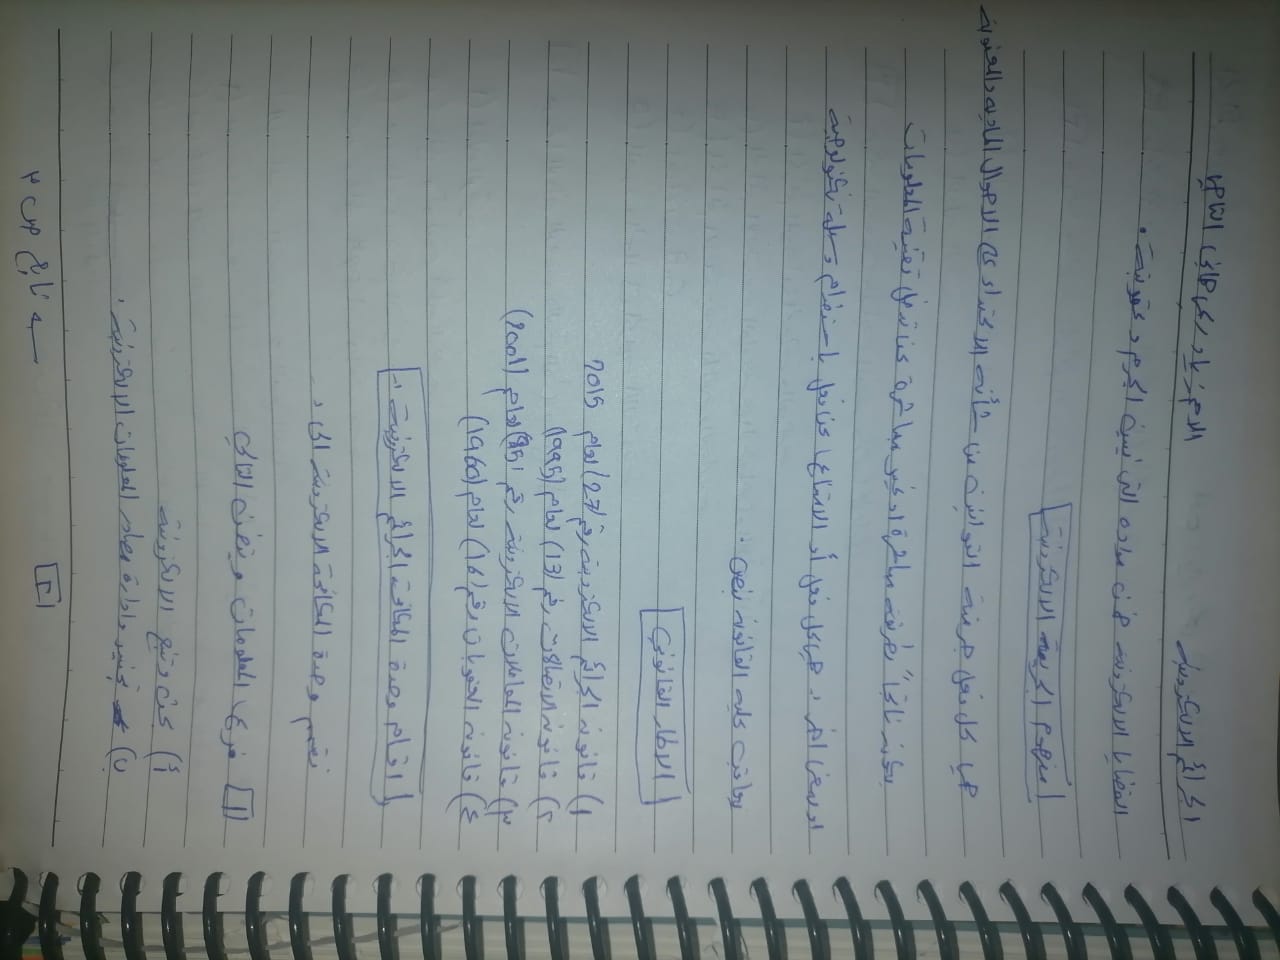 الجرائم الالكترونية الاسم زياد هاني
القضايا الالكترونية ضمن مواده التي تبين الجرم وعقوبته .
مفهوم الجريمة الالكترونية
هي كل فعل جرمته القوانين من شأنه الاعتداء على الاموال الماديه والمعنوية
يكون ناتجاً بطريقة مباشرة او غير مباشرة عن تدخل تقنية المعلومات
او بمعنى اخر : هي كل فعل أو الامتناع عن فعل باستخدام وسيلة تكنولوجية
يعاقب عليه القانون بنص .
الاطار القانوني
١) قانون الجرائم الالكترونية رقم (27) لعام 2015
٢) قانون الاتصالات رقم (13) لعام (1995)
٣) قانون المعاملات الالكترونية رقم لعام (2001)
٤) قانون العقوبات رقم (16) لعام (1960)
اقسام وحدة المكافحة الجرائم الالكترونية :-
تقسم وحدة المكافحة الالكترونية الى :
١ فرع المعلومات ويتضمن التالي
أ) بحث وتتبع الالكترونية
ب) تجنيد وادارة مصادر المعلومات الالكترونية .
٢ تابع ص ٣